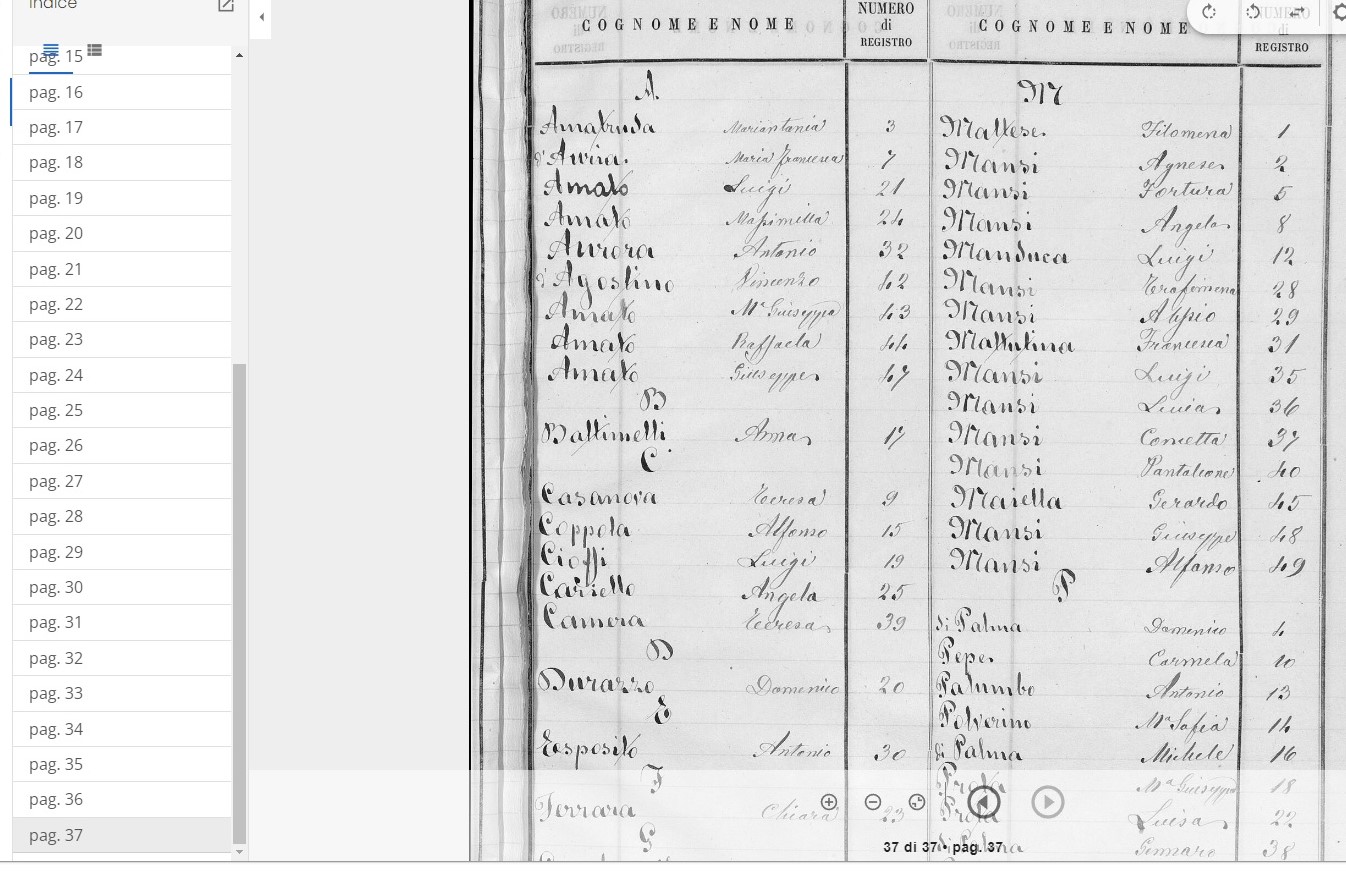 Indice
pag. 15
pag. 16
pag. 17
pag. 18
pag. 19
pag. 20
pag. 21
pag. 22
pag. 23
pag. 24
pag. 25
pag. 26
pag. 27
pag. 28
pag. 29
pag. 30
pag. 31
pag. 32
pag. 33
pag. 34
pag. 35
pag. 36
pag. 37
COGNOME E NOME
NUMERO
di
REGISTRO
A.
Amatruda Mariantonia 3
d'Avira. Maria Francesca 7
Amato Luigi 21
Amato Massimilla 24
Aurora Antonio 32
d'Agostino Vincenzo 42
Amato Mª Giuseppa 43
Amato Raffaela 44
Amato Giuseppe 47
B
Battimelli Anna 17
C
Casanova Teresa 9
Coppola Alfonso 15
Cioffi Luigi 19
Carriello Angela 25
Camera Teresa 39
D
Durazzo Domenico 20
E
Esposito Antonio 30
F
Ferrara Chiara 23
G
COGNOME E NOME
NUMERO
di
REGISTRO
M
Maltese Filomena 1
Mansi Agnese 2
Mansi Fortura 5
Mansi Angela 8
Manduca Luigi 12
Mansi Trofimena 28
Mansi Alisio 29
Mattulina Francesca 31
Mansi Luigi 35
Mansi Luisa 36
Mansi Concetta 37
Mansi Pantaleone 40
Maiella Gerardo 45
Mansi Giuseppe 48
Mansi Alfonso 49
P
di Palma Domenico 4
Pepe Carmela 10
Palumbo Antonio 13
Polverino Mª Sofia 14
di Palma Michele 16
Proto Mª Giuseppa 18
Proto Luisa 22
di Palma Gennaro 38
37 di 37 • pag. 37